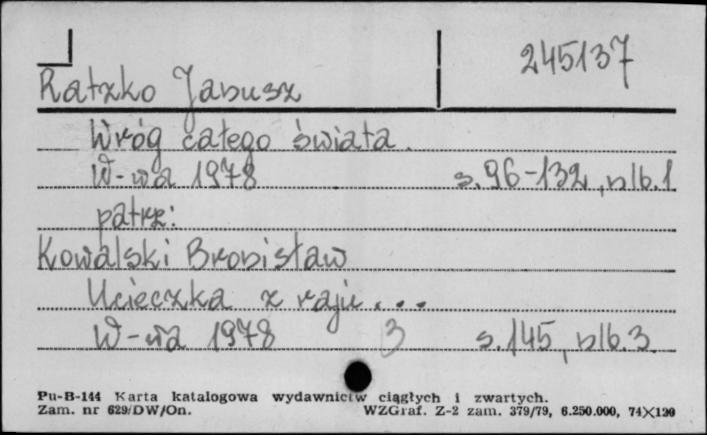 245137
Ratzko Janusz
Wróg całego świata.
W-wa 1978 s. 96-132, nlb. 1
patrz:
Kowalski Bronisław
Ucieczka z raju...
W-wa 1978 3 s. 145, nlb. 3
Pu-B-144 Karta katalogowa wydawnictw ciągłych i zwartych.
Zam. nr 629/DW/On. WZGraf. Z-2 zam. 379/79, 6.250.000, 74X120